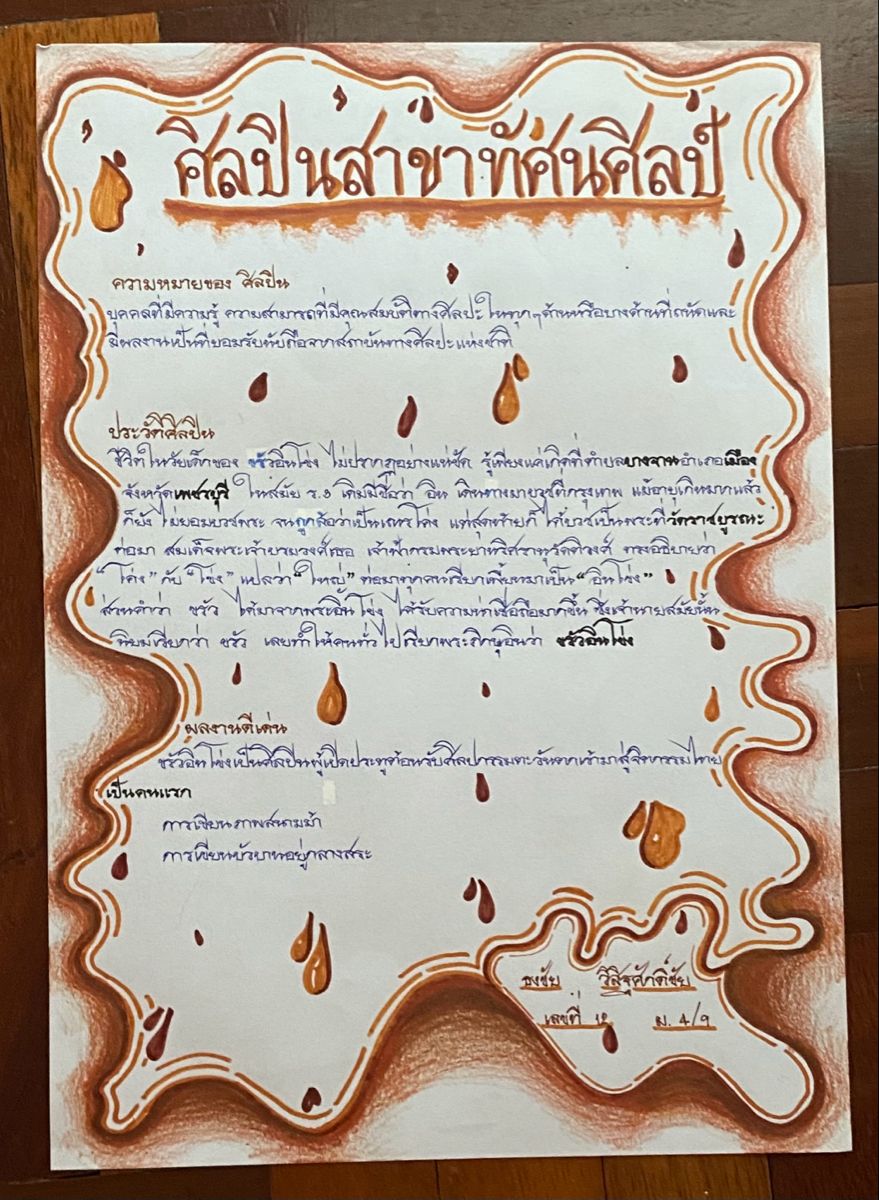 ศิลปินสาขาทัศนศิลป์
ความหมายของ ศิลปิน
บุคคลที่มีความรู้ ความสามารถที่มีคุณสมบัติทางศิลปะในทุกๆด้านหรือบางด้านที่ถนัดและ
มีผลงานเป็นที่ยอมรับนับถือจากสถาบันทางศิลปะแห่งชาติ
ประวัติศิลปิน
ชีวิตในวัยเด็กของ ขรัวอินโข่ง ไม่ปรากฏอย่างแน่ชัด รู้เพียงแค่เกิดที่ตำบลบางจานอำเภอเมือง
จังหวัดเพชรบุรี ในสมัย ร.๑ เดิมมีชื่อว่า อิน เดินทางมาบวชที่กรุงเทพ แม้อายุเกินมากแล้ว
ก็ยัง ไม่ยอมบวชพระ จนถูกล้อว่าเป็นเณรโค่ง แต่สุดท้ายก็ได้บวชเป็นพระที่วัดราชบูรณะ
ต่อมา สมเด็จพระเจ้าบรมวงศ์เธอ เจ้าฟ้ากรมพระยานริศรานุวัดติวงศ์ ทรงอธิบายว่า
"โค่ง" กับ "โข่ง" แปลว่า "ใหญ่" ต่อมาทุกคนเรียกเพี้ยนมาเป็น "อินโข่ง"
ส่วนคำว่า ขรัว ได้มาจากพระอินโข่ง ได้รับความน่าเชื่อถือมากขึ้น ซึ่งเจ้านายสมัยนั้น
นิยมเรียกว่า ขรัว เลยทำให้คนทั่วไปเรียกพระภิกษุอินว่า ขรัวอินโข่ง
ผลงานดีเด่น
ขรัวอินโข่งเป็นศิลปินผู้เปิดประตูต้อนรับศิลปกรรมตะวันตกเข้ามาสู่จิตกรรมไทย
เป็นคนแรก
การเขียนภาพสนามม้า
การเขียนบัวบานอยู่กลางสระ
ธงชัย วิสิฐศักดิ์ชัย
เลขที่ ๗ ม. 4/9